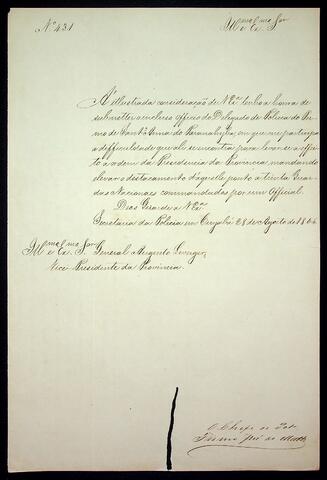 Nº 431
Illmo e Exmo Snr
A' illustrada consideração de V Exª tenho a honra de
submetter o incluso officio do Delegado de Policia do Ter-
mo de Sant'Anna do Paranahyba, em que me participa
a difficuldade que ali se encontra para levar-se a effei-
to a ordem da Presidencia da Provincia, mandando
elevar o destacamento d'aquelle ponto à trinta Guar-
das Nacionaes commandadas por um Official.
Deos Guarde a V Exª
Secretaria da Policia em Cuyabá 28 de Agosto de
Illmo e Exmo Snr General Augusto Leverger,
Vice-Presidente da Provincia.
O Chefe de Pol.
Firmo José de Mattos